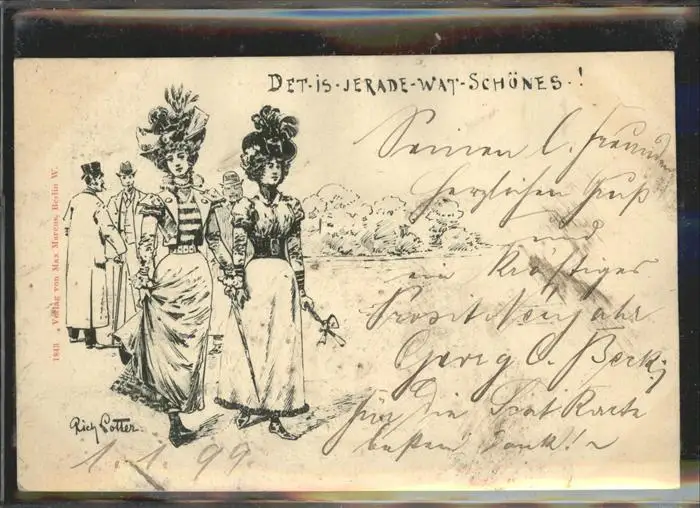 DET-IS-JERADE-WAT-SCHÖNES-!
Seinen l. Freunden
herzlichen Gruß
und
ein kräftiges
Prosit Neujahr
Georg
für die Karte
besten Dank!
Rich Lotter.
1.1.99.
1843 Verlag von Max Marcus, Berlin W.